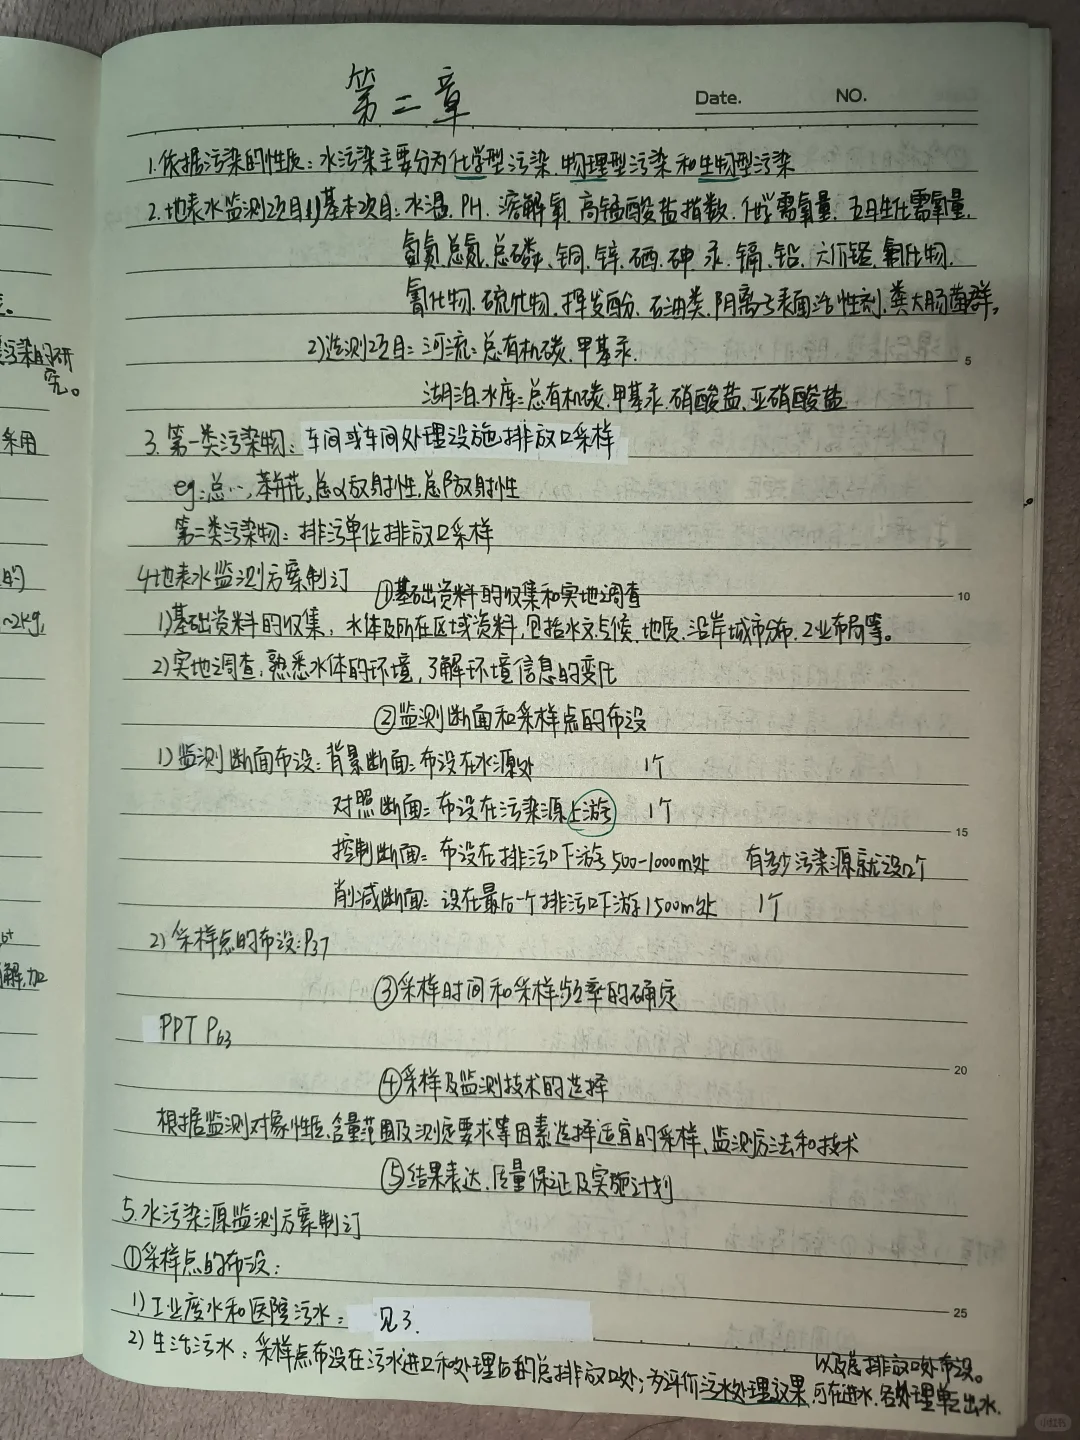 第二章
Date. NO.
1.依据污染的性质：水污染主要分为化学型污染.物理型污染和生物型污染
2.地表水监测项目1)基本项目：水温.PH.溶解氧.高锰酸盐指数.化学需氧量.五日生化需氧量.
氨氮.总氮.总磷.铜.锌.硒.砷.汞.镉.铅.六价铬.氟化物.
氰化物.硫化物.挥发酚.石油类.阴离子表面活性剂.粪大肠菌群。
2)选测项目：河流：总有机碳.甲基汞.
5
湖泊.水库：总有机碳.甲基汞.硝酸盐.亚硝酸盐
3.第一类污染物：车间或车间处理设施排放口采样
eg：总…,苯并芘,总α放射性,总β放射性
第二类污染物：排污单位排放口采样
4.地表水监测方案制订
①基础资料的收集和实地调查
10
1)基础资料的收集，水体及所在区域资料,包括水文.气候.地质.沿岸城市分布.工业布局等。
2)实地调查：熟悉水体的环境，了解环境信息的变化
②监测断面和采样点的布设
1)监测断面布设：背景断面：布设在水源处 1个
对照断面：布设在污染源上游 1个
15
控制断面：布设在排污口下游500-1000m处 有多少污染源就设几个
削减断面：设在最后一个排污口下游1500m处 1个
2)采样点的布设：P37
③采样时间和采样频率的确定
PPT P63
20
④采样及监测技术的选择
根据监测对象性质.含量范围及测定要求等因素选择适宜的采样、监测方法和技术
⑤结果表达.质量保证及实施计划
5.水污染源监测方案制订
①采样点的布设：
25
1)工业废水和医院污水： 见3.
2)生活污水：采样点布设在污水进口和处理后的总排放口处；为评价污水处理效果,可在进水.各处理单元出水.
以及总排放口处布设。
污染的研
究。
采用
的
~2kg,
解,加
小红书